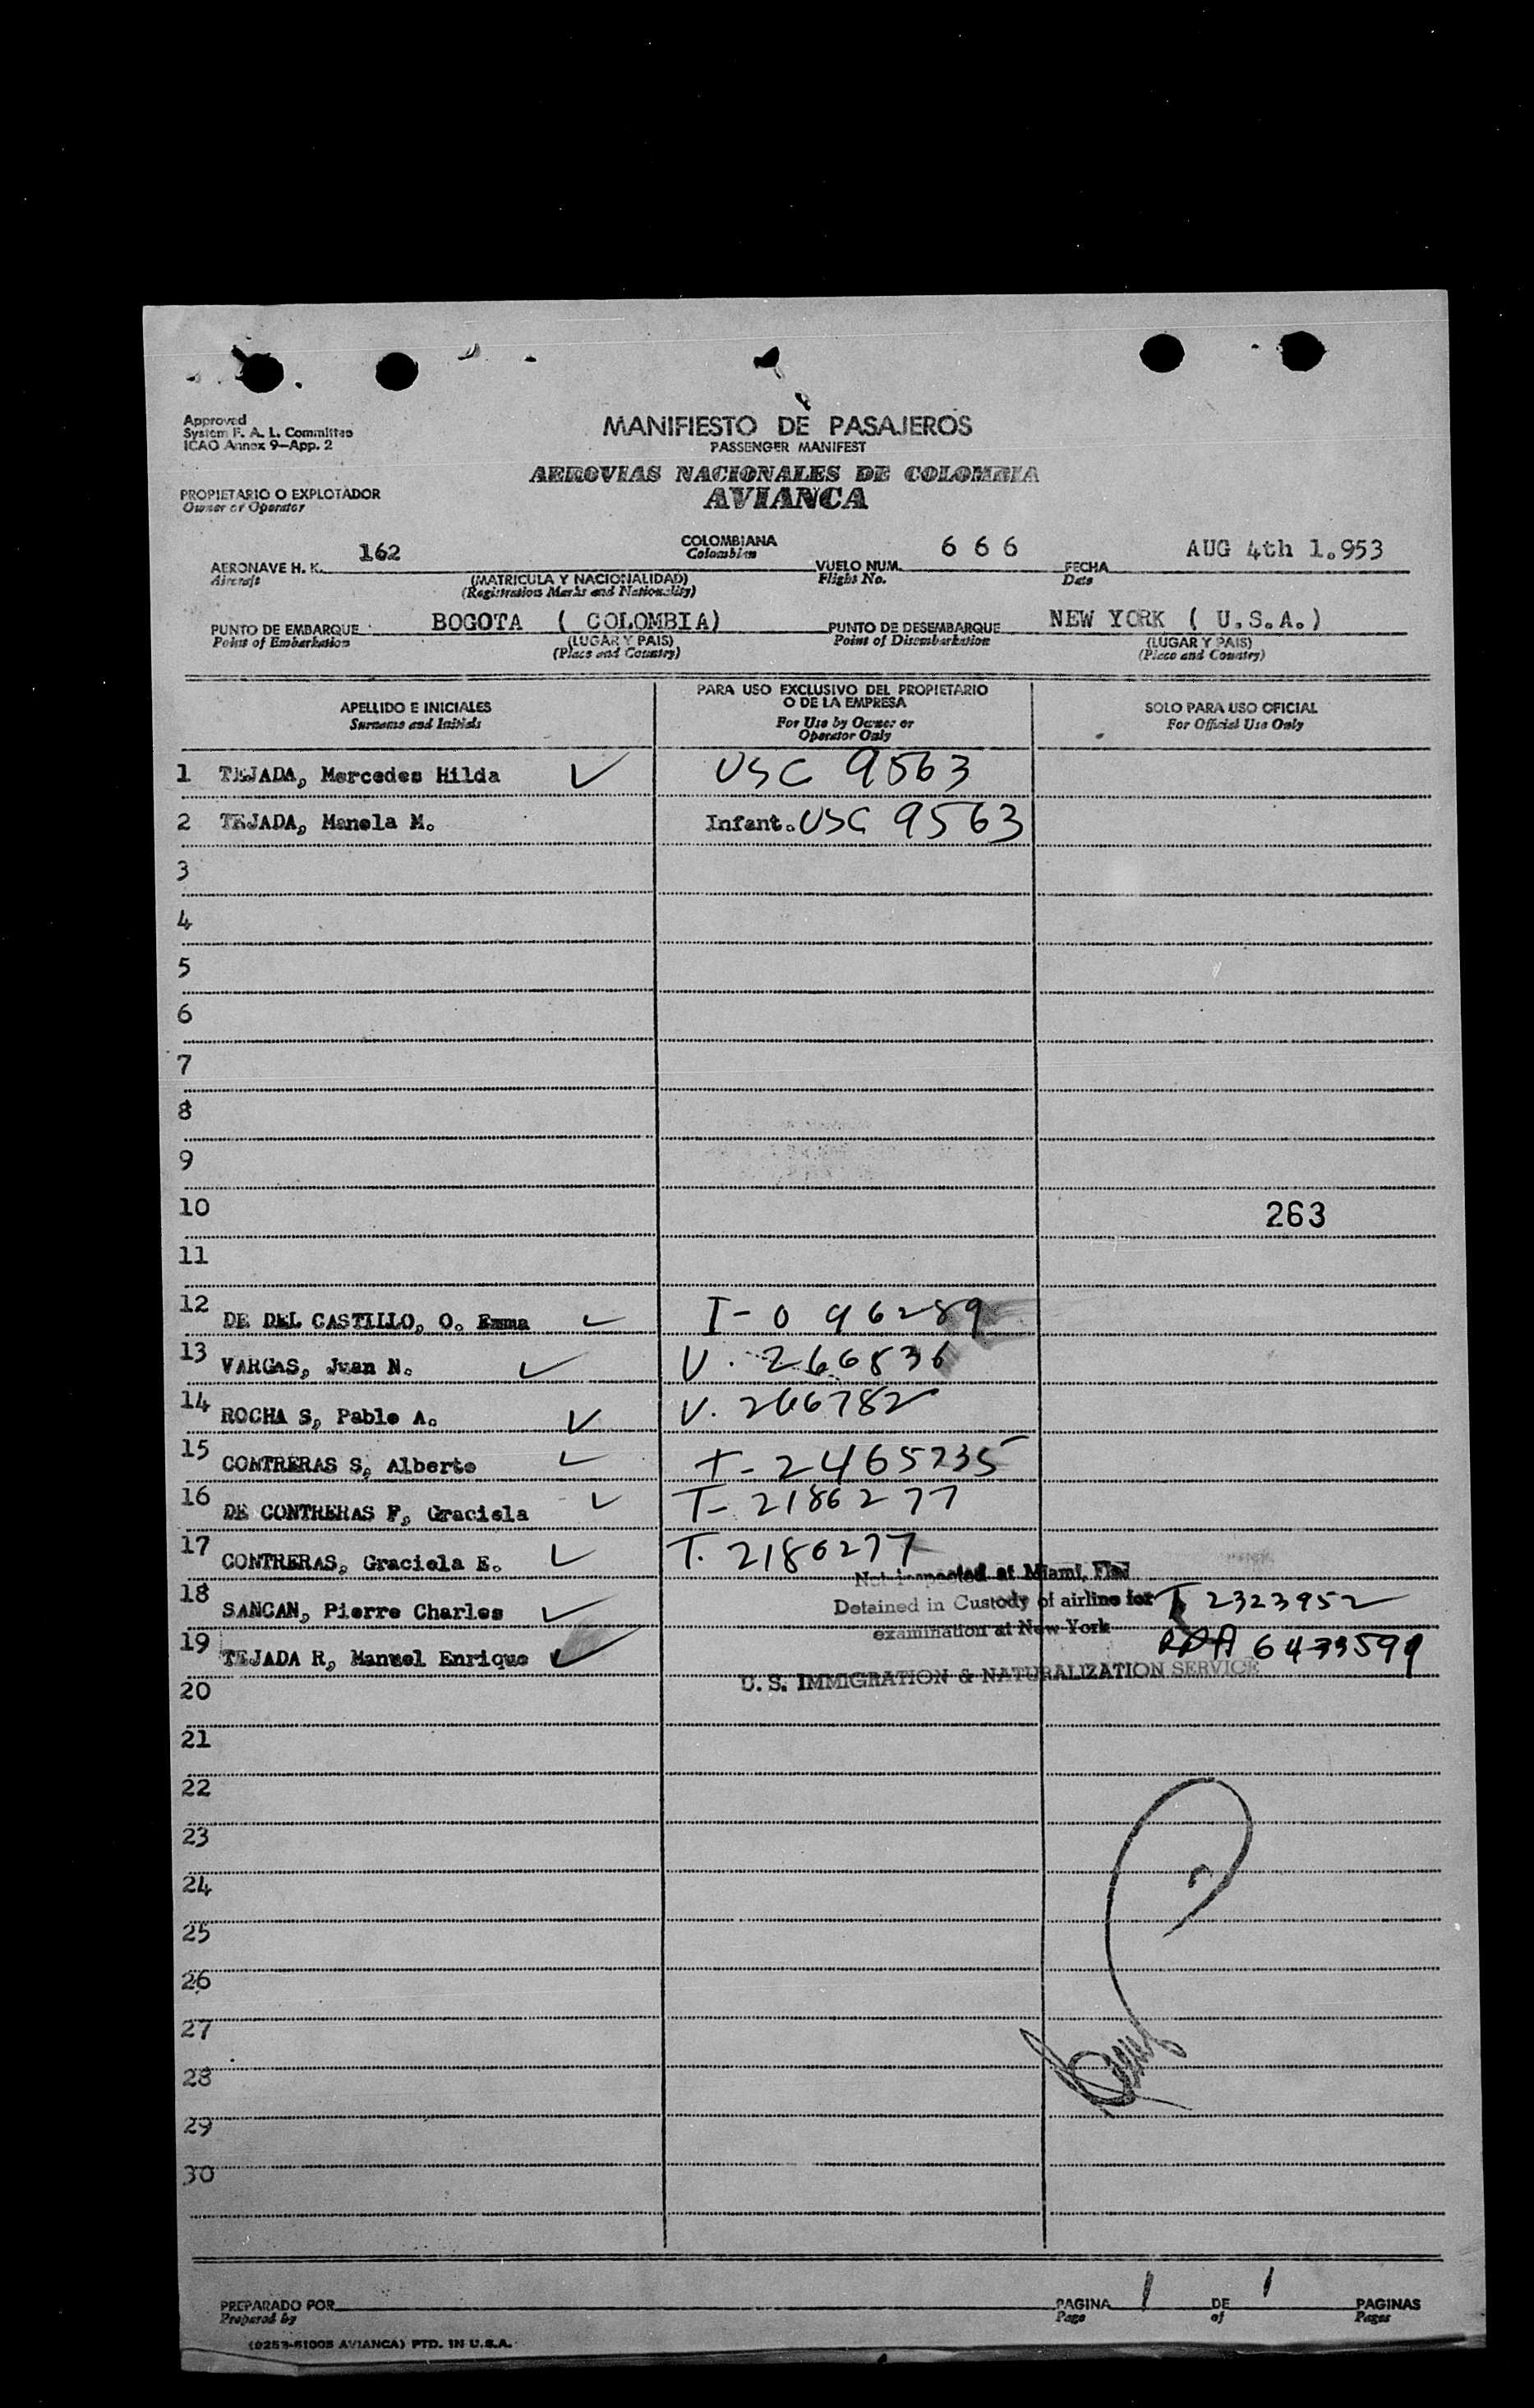 Approved
System F. A. L. Committee
ICAO Annex 9—App. 2
MANIFIESTO DE PASAJEROS
PASSENGER MANIFEST
AEROVIAS NACIONALES DE COLOMBIA
AVIANCA
PROPIETARIO O EXPLOTADOR
Owner or Operator
AERONAVE H. K. 162 COLOMBIANA VUELO NUM. 6 6 6 FECHA AUG 4th 1.953
Aircraft Colombian Flight No. Date
(MATRICULA Y NACIONALIDAD)
(Registration Marks and Nationality)
PUNTO DE EMBARQUE BOGOTA ( COLOMBIA) PUNTO DE DESEMBARQUE NEW YORK ( U.S.A.)
Point of Embarkation (LUGAR Y PAIS) Point of Disembarkation (LUGAR Y PAIS)
(Place and Country) (Place and Country)
APELLIDO E INICIALES
Surname and Initials
PARA USO EXCLUSIVO DEL PROPIETARIO
O DE LA EMPRESA
For Use by Owner or
Operator Only
SOLO PARA USO OFICIAL
For Official Use Only
1 TEJADA, Mercedes Hilda USC 9563
2 TEJADA, Manela M. Infant. USC 9563
3
4
5
6
7
8
9
10 263
11
12 DE DEL CASTILLO, O. Emma I-0 96289
13 VARGAS, Juan N. V. 266836
14 ROCHA S, Pablo A. V. 266782
15 CONTRERAS S, Alberto T-2465235
16 DE CONTRERAS F, Graciela T-2186277
17 CONTRERAS, Graciela E. T. 2186277
Not inspected at Miami, Fla.
18 SANCAN, Pierre Charles Detained in Custody of airline for T 2323952
examination at New York
19 TEJADA R, Manuel Enrique 6433591
U. S. IMMIGRATION & NATURALIZATION SERVICE
20
21
22
23
24
25
26
27
28
29
30
PREPARADO POR PAGINA 1 DE 1 PAGINAS
Prepared by Page of Pages
(0253-51005 AVIANCA) PTD. IN U.S.A.